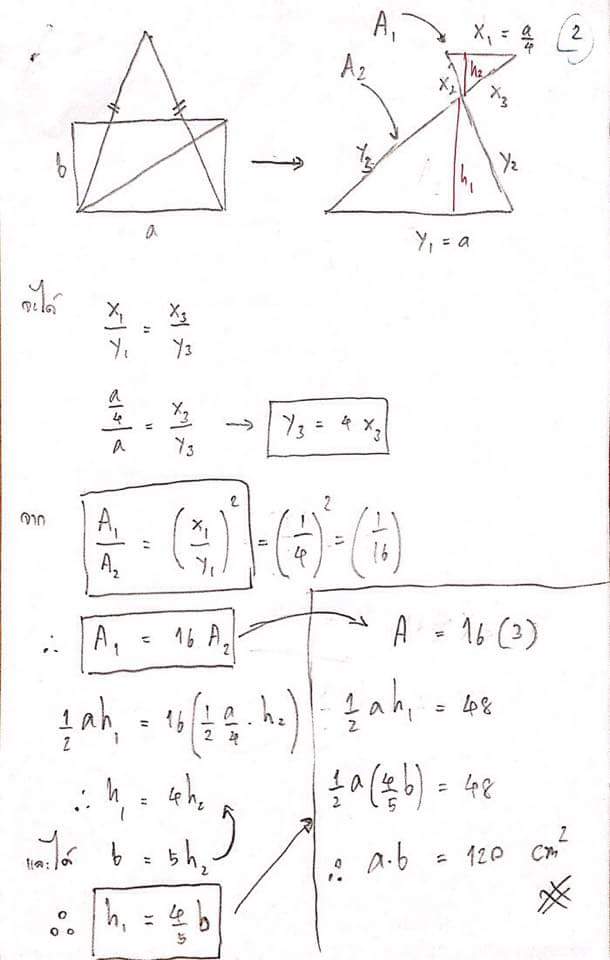 2
b
a
A₁
A₂
X₁ = a/4
h₂
X₂
X₃
Y₃
Y₂
h₁
Y₁ = a
จะได้ X₁/Y₁ = X₃/Y₃
(a/4)/a = X₃/Y₃ → Y₃ = 4 X₃
จาก A₁/A₂ = (X₁/Y₁)² = (1/4)² = (1/16)
∴ A₁ = 16 A₂
½ ah₁ = 16(½ a/4 · h₂)
∴ h₁ = 4h₂
และได้ b = 5h₂
∴ h₁ = 4/5 b
A = 16 (3)
½ a h₁ = 48
½ a(4/5 b) = 48
∴ a·b = 120 cm²